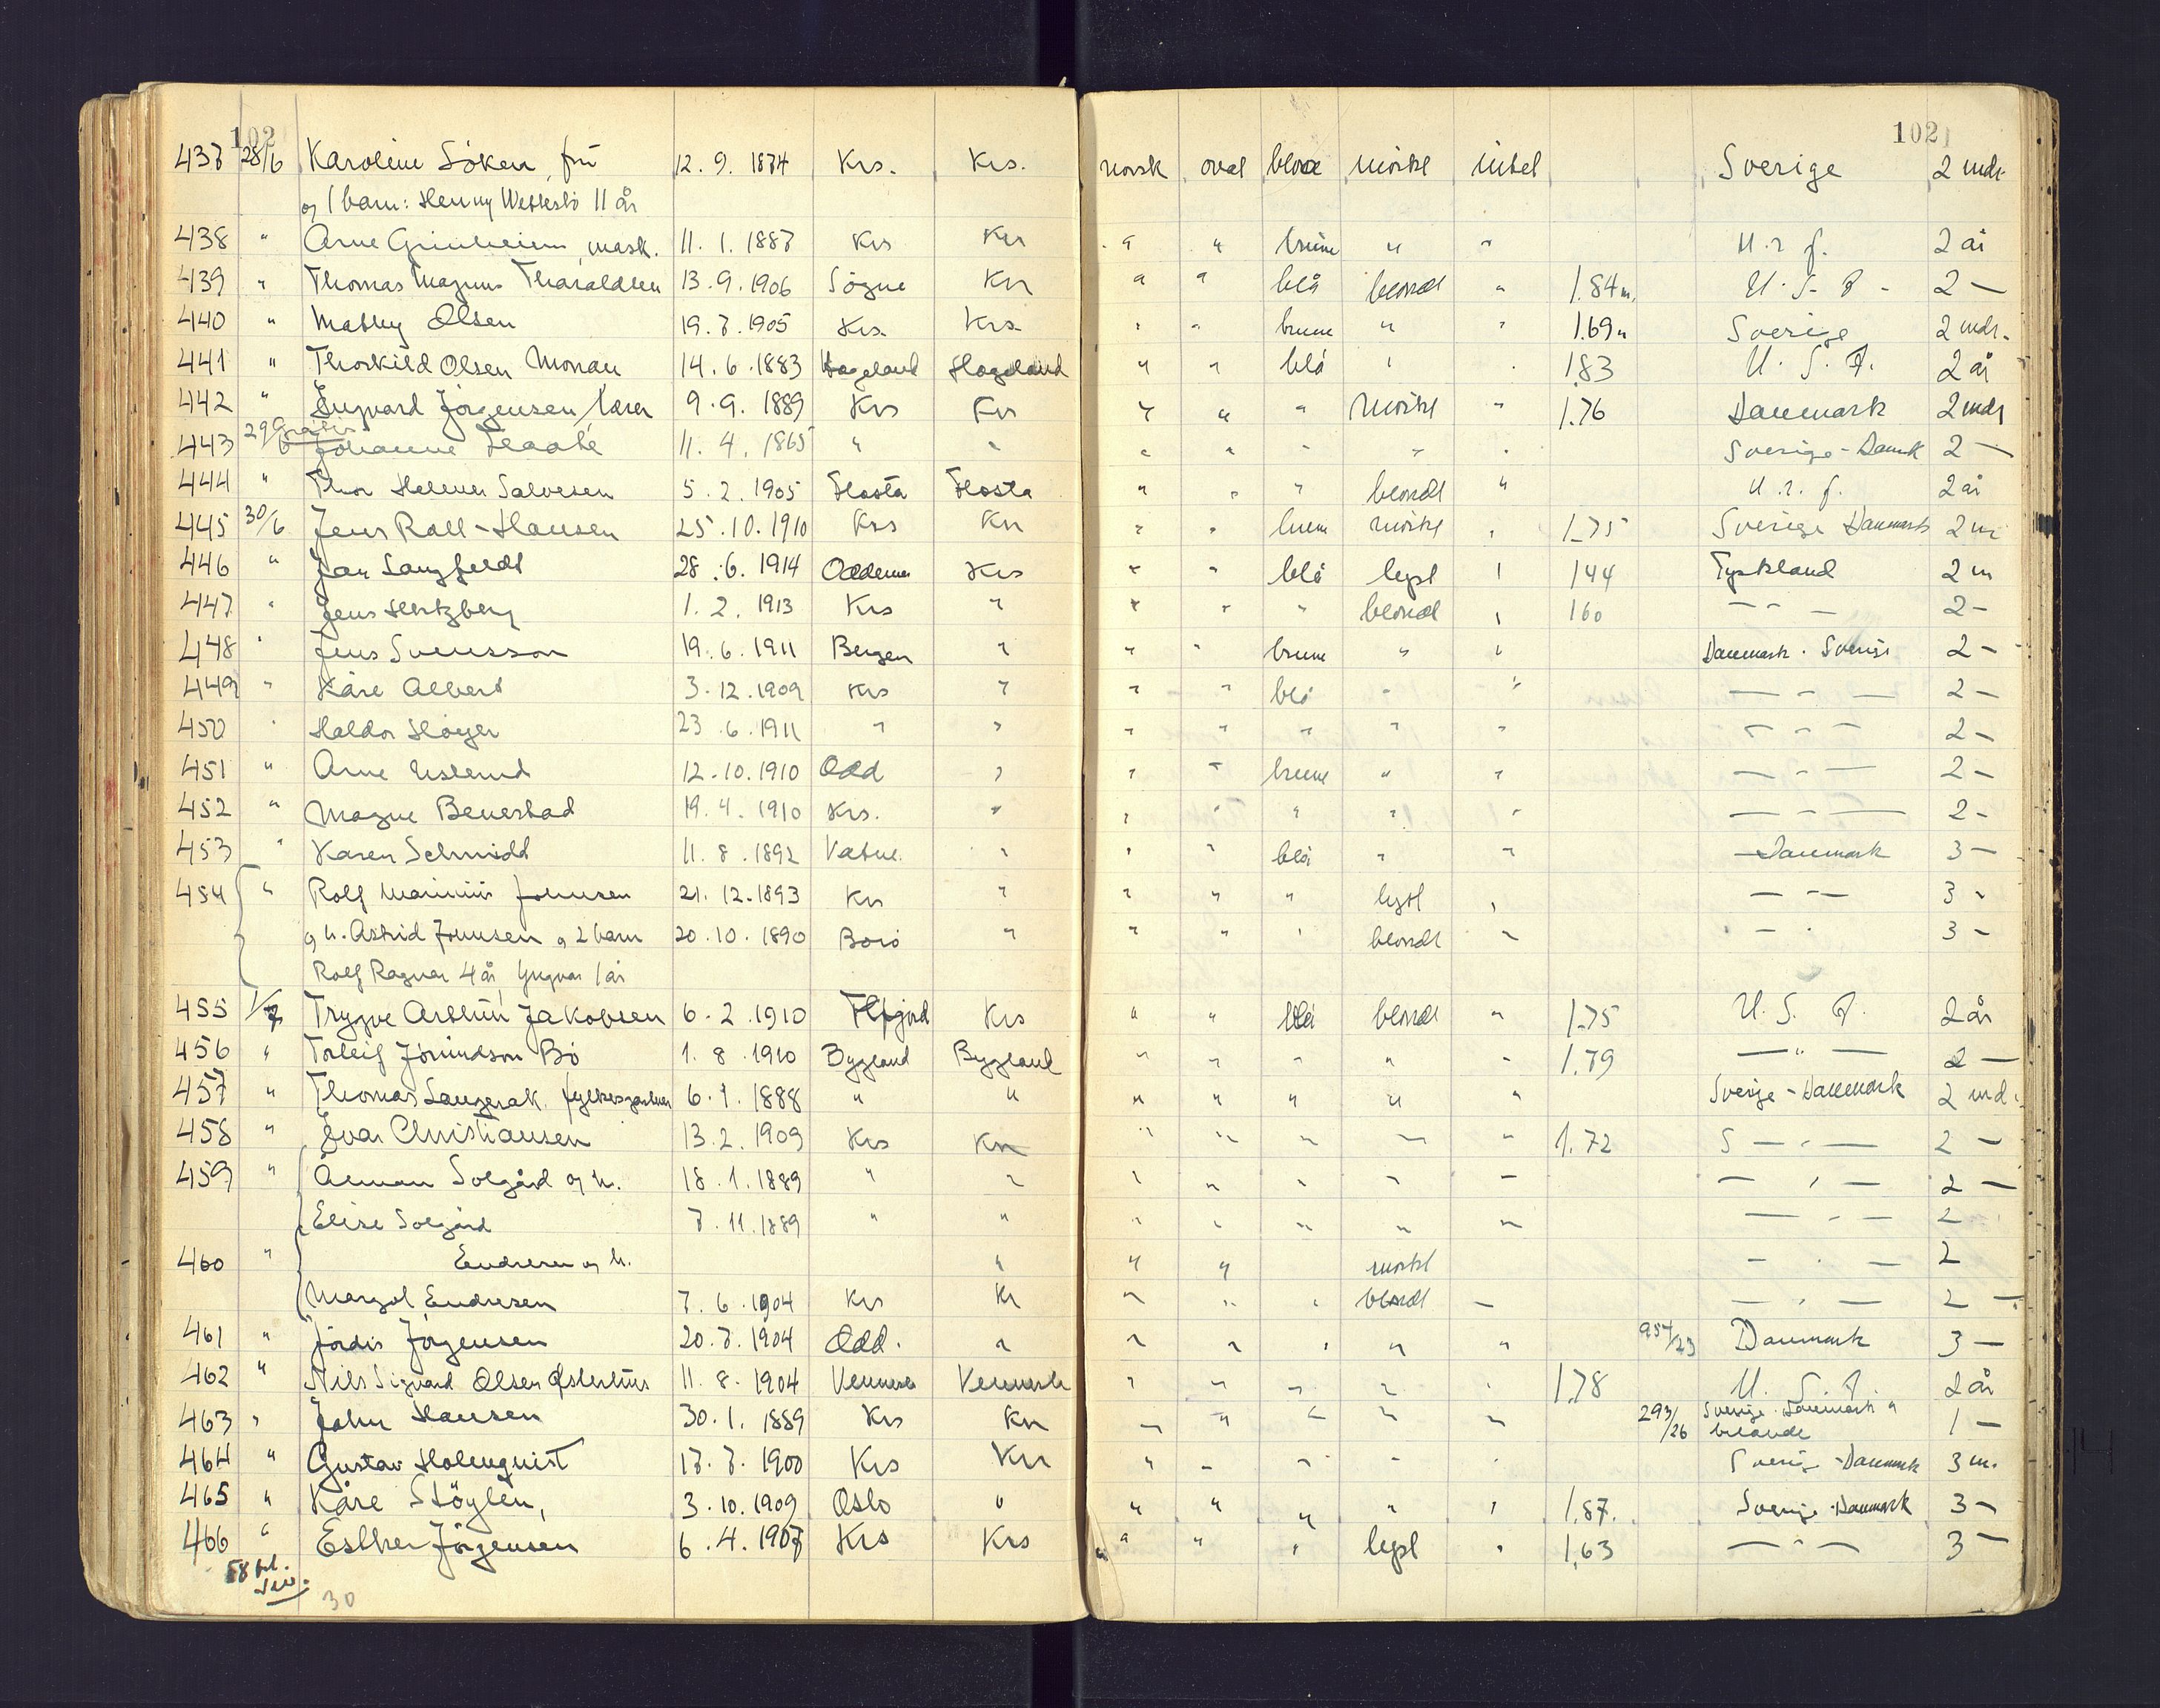 102 102
437 28/6 Karoline Söken, frú 12. 9. 1874 Krs. Krs. norsk oval blaae mörkt intet Sverige 2 mdr
og 1 barn: Henny 11 år
438 " Arne Grimheim, mask. 11. 1. 1887 Krs Krs " " brune " " U.r.f. 2 år
439 " Thomas Magnus Tharaldsen 13. 9. 1906 Sögne Krs " " blå blondt " 1.84 m. U.S.A. 2 —
440 " Mathey Olsen 19. 7. 1905 Krs. Krs. " " brune " " 1.69 " Sverige 2 mdr.
441 " Thorkild Olsen Monau 14. 6. 1883 Hageland Hageland " " blå " " 1.83 U.S.A. 2 år
442 " Ingvard Jörgensen, lærer 9. 9. 1889 Krs Krs " " " mörkt " 1.76 Danmark 2 mdr
443 29/6 Gratis Johanne Haabe 11. 4. 1865 " " " " " " " Sverige - Danmk 2 —
444 " Thor Helmer Salvesen 5. 2. 1905 Flosta Flosta " " " blondt " U.r.f. 2 år
445 30/6 Jens Roll-Hansen 25. 10. 1910 Krs Krs " " brune mörkt " 1.75 Sverige Danmark 2 m
446 " Jan Langfeldt 28. 6. 1914 Oddernes Krs " " blå lyst " 144 Tyskland 2 m
447 " Jens Hertzberg 1. 2. 1913 Krs " " " " blondt " 160 — " — 2 -
448 " Jens Svensson 19. 6. 1911 Bergen " " " brune " " Danmark. Sverige 2 -
449 " Kåre Albert 3. 12. 1909 Krs " " " blå " " — " — 2 -
450 " Haldor Höyer 23. 6. 1911 " " " " " " " — " — 2 -
451 " Arne Usterud 12. 10. 1910 Odd " " " brune " " — " — 2 -
452 " Magne Benestad 19. 4. 1910 Krs. " " " " " " — " — 2 -
453 " Karen Schmidt 11. 8. 1892 Vatne. " " " blå " " Danmark 3 —
454 " Rolf Johnsen 21. 12. 1893 Krs " " " " lyst " — " — 3 "
og h. Astrid Johnsen og 2 barn 20. 10. 1890 Borö " " " " blondt " " — " 3 -
Rolf Ragnar 4 år, Yngvar 1 år
455 1/7 Trygve Arthur Jakobsen 6. 2. 1910 Krs " " blå blondt " 1.75 U.S.A. 2 år
456 " Torleif Jörundson Bö 1. 8. 1910 Bygland Bygland " " " " " 1.79 — " — 2 —
457 " Thomas Langerak, fylkesgartner 6. 1. 1888 " " " " " " " Sverige - Danmark 2 md.
458 " Ivar Christiansen 13. 2. 1909 Krs Krs " " " " " 1.72 S — " — 2 -
459 " Åmon Solgård og h. 18. 1. 1889 " " " " " " " — " — 2 —
Elise Solgård 7. 11. 1889 " " " " " " " — " — 2
460 " Endresen og h. " " " mörkt - " - 2
Margot Endresen 7. 6. 1904 Krs Kr " " " blondt — — " — 2 —
461 " Jördis Jörgensen 20. 7. 1904 Odd. " " " " " " 954/23 Danmark 3 —
462 " Nils Sigvard Olsen Østerhus 11. 8. 1904 Vennesla Vennesla " " " " " 1.78 U.S.A. 2 år
463 " John Hansen 30. 1. 1889 Krs Krs " " " " " 293/26 Sverige. Danmark 1 —
464 " Gustav Holmquist 17. 7. 1900 Krs Krs " " " " " Sverig - Danmark 3 m.
465 " Kåre Stöylen, 3. 10. 1909 Oslo " " " " " " 1.87. Sverige - Danmark 3 -
466 " Esther Jörgensen 6. 4. 1907 Krs Krs " " " lyst " 1.63 — " — 3 —
30